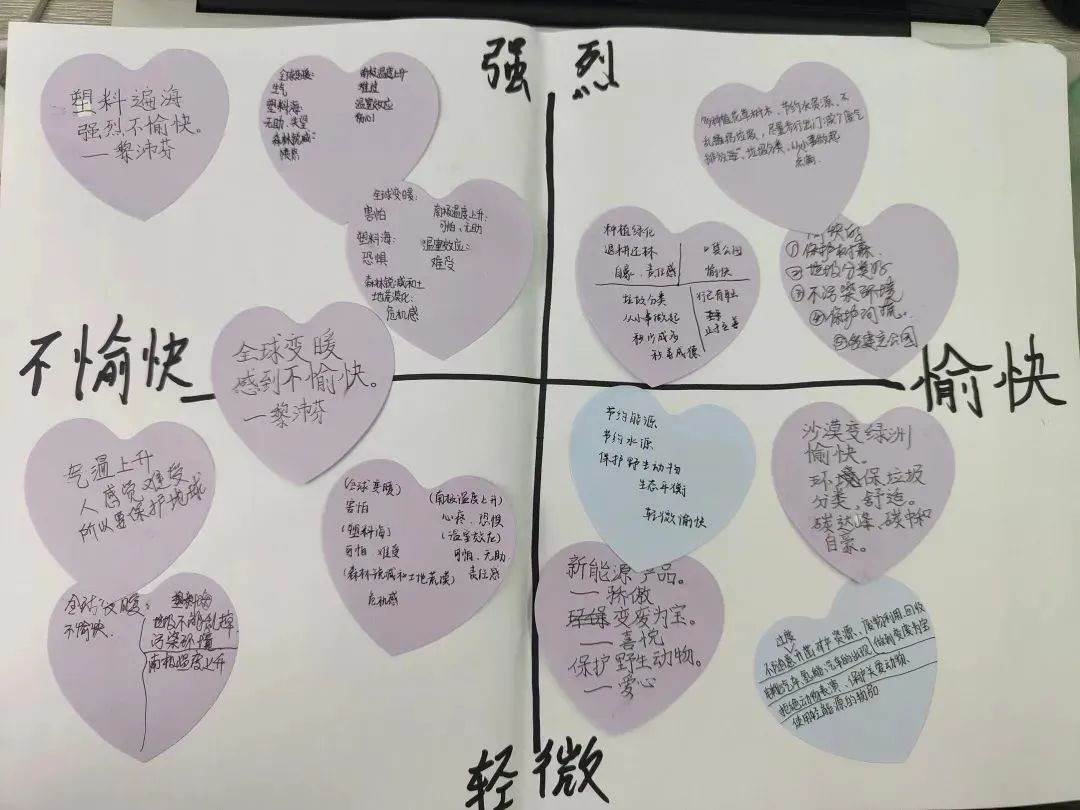 强烈
不愉快
愉快
轻微
塑料遍海
强烈不愉快。
—黎沛芬
全球变暖:
生气
塑料海:
无助、失望
森林锐减:
愤怒
南极温度上升
难过
温室效应
伤心
全球变暖:
害怕
塑料海:
恐惧
南极温度上升:
可怕、无助
温室效应:
难受
森林锐减和土
地荒漠化:
危机感
全球变暖
感到不愉快。
—黎沛芬
气温上升
人感觉难受
所以要保护地球
全球变暖:
不愉快.
塑料海
垃圾不能乱掉
污染环境
南极温度上升
(全球变暖)
害怕
(塑料海)
可怕 难受
(森林锐减和土地荒漠)
危机感
(南极温度上升)
心疼、恐惧
(温室效应)
可怕、无助
责任感
多种植花草树木、节约水资源、不
乱扔垃圾、尽量步行出门、减少废气
排放量、垃圾分类、从小事做起
种植绿化
退耕还林
自豪、责任感
公园
愉快
垃圾分类
从小事做起
①保护森林
②垃圾分类好
③不污染环境
④保护河流.
⑤多建立公园
节约能源
节约水源
保护野生动物
生态平衡
轻微愉快
沙漠变绿洲
愉快。
环境保垃圾
分类,舒适。
碳达峰、碳中和
自豪。
新能源产品。
—骄傲
变废为宝。
—喜悦
保护野生动物。
—爱心
过度
资源、废物利用回收
做到变废为宝
电能汽车、氢能汽车的出现
拒绝动物表演、保护关爱动物、
使用轻能源的物品